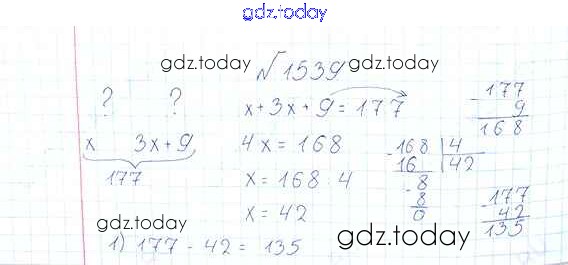 gdz.today
gdz.today №1539 gdz.today
? ?
x 3x+9
177
x+3x+9=177
4x=168
x=168:4
x=42
177
- 9
168
-168 | 4
16 | 42
-8
8
0
-177
42
135
gdz.today
1) 177 - 42 = 135
gdz.today